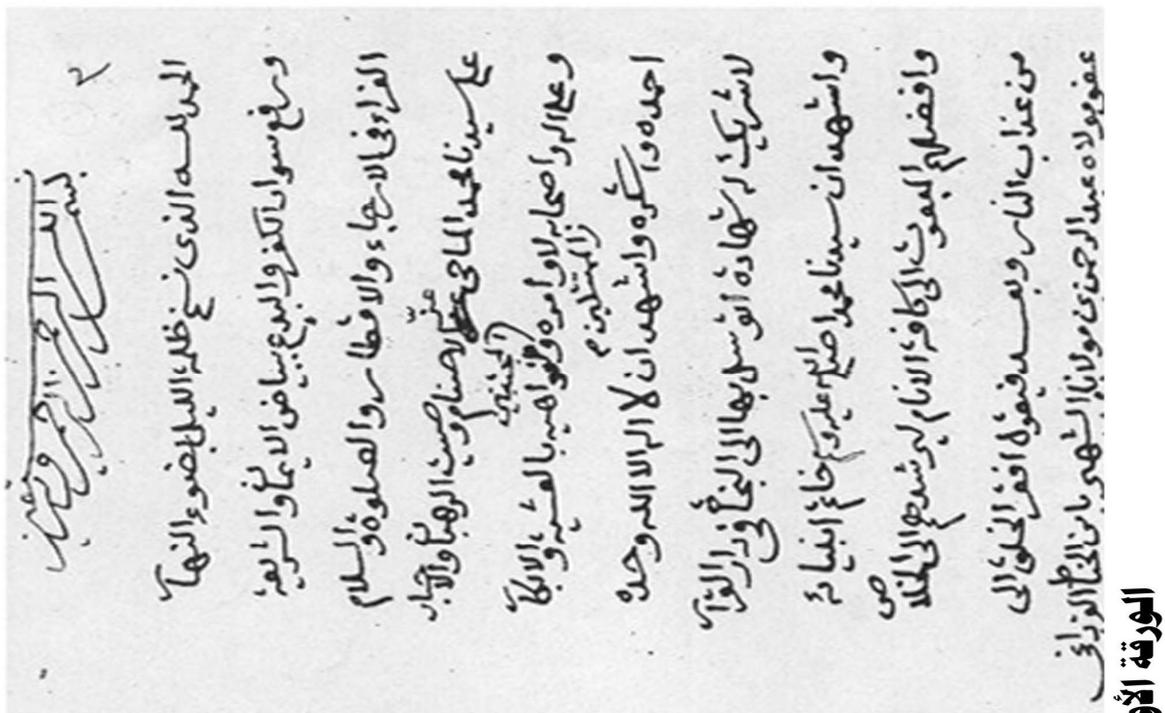 بسم الله الرحمن الرحيم
٢
الحمد لله الذي نسخ ظلمة الليل بضوء النهار
ورفع سواد الكفر والبدع ببياض الايمان والشريعة
الغراء في الارجاء والاقطار والصلوة والسلام
على سيدنا محمد الماحي الاصنام وصيت الرهبان والاحبار
وعلى اله واصحابه لاوامره ونواهيه بالعشي والابكار
الممتثلين
المجتنبين
احمده واشكره واشهد ان لا اله الا الله وحده
لا شريك له شهادة اتوسل بها الى النجاة في دار القرار
واشهد ان سيدنا محمدا صلى الله عليه وسلم خاتم انبيائه
وافضلهم المبعوث الى كافة الانام ليرشدهم الى الخلاص
من عذاب النار وبعد فيقول افقر الخلق الى
عفو مولاه عبد الرحمن بن مولانا الشهير بابن الحاج
الورقة الأو